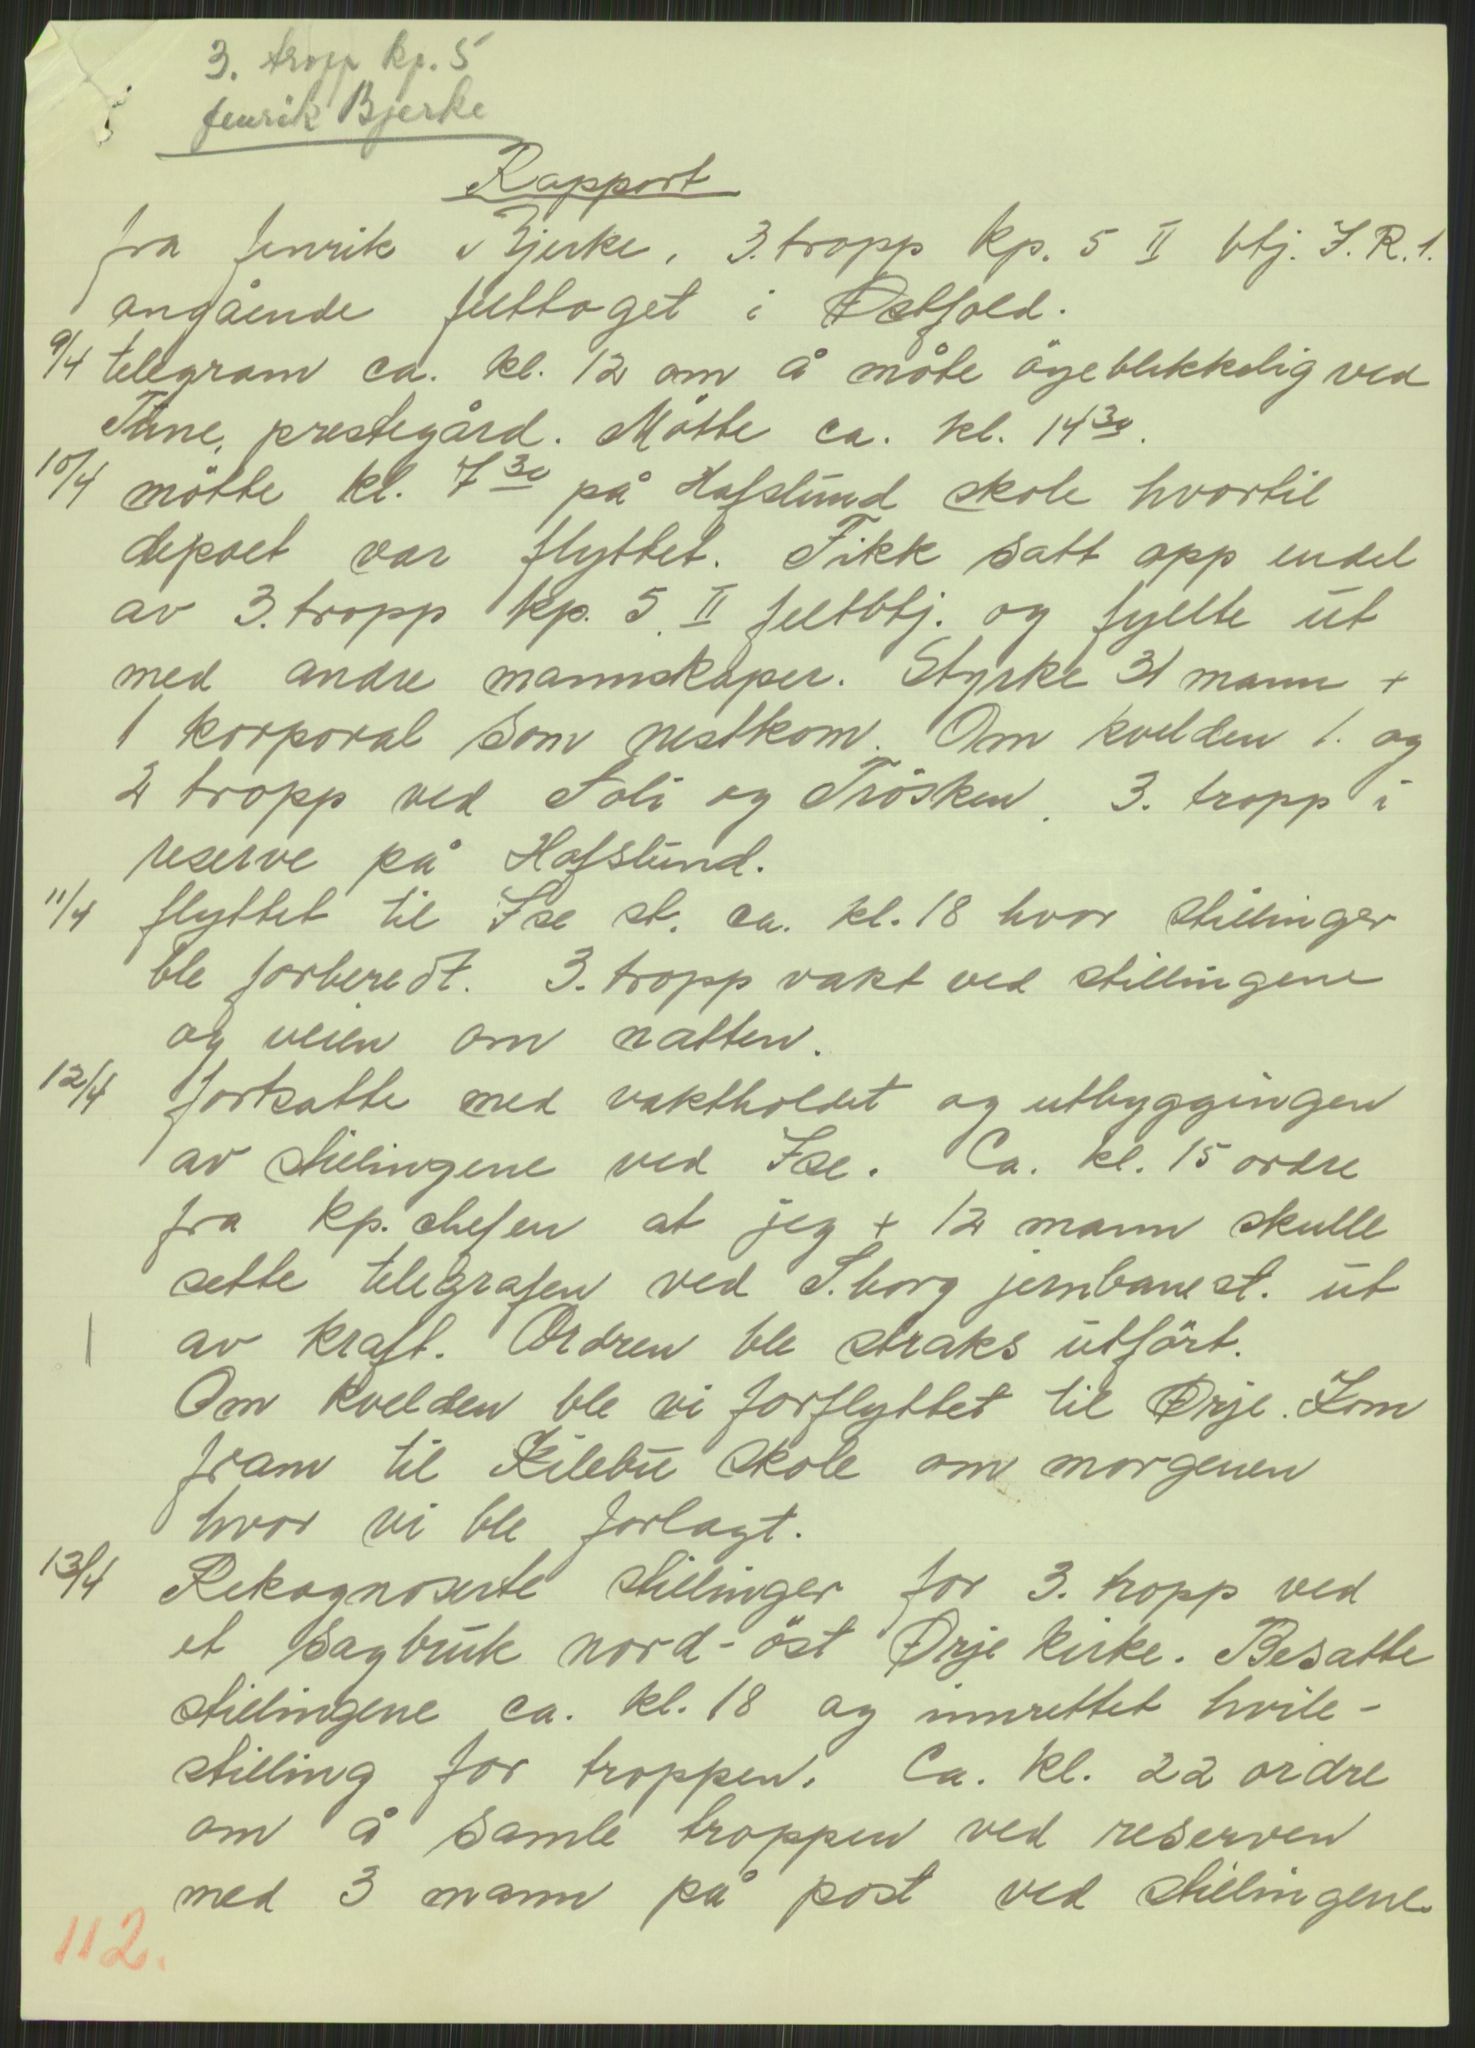 3. tropp kp. 5
fenrik Bjerke
Rapport
fra fenrik Bjerke, 3. tropp kp. 5 II btj. I.R.1.
angående felttoget i Østfold.
9/4 telegram ca. kl. 12 om å møte öyeblikkelig ved
Tune, prestegård. Møtte ca. kl. 14³⁰.
10/4 møtte kl. 7³⁰ på Hafslund skole hvortil
depoet var flyttet. Fikk satt opp endel
av 3. tropp kp. 5. II feltbtj. og fyllte ut
med andre mannskaper. Styrke 31 mann +
1 korporal som nestkom. Om kvelden 1. og
2 tropp ved Soli og Trösken. 3. tropp i
reserve på Hafslund.
11/4 flyttet til Ise st. ca. kl. 18 hvor stillinger
ble forberedt. 3. tropp vakt ved stillingene
og veien om natten.
12/4 fortsatte med vaktholdet og utbyggingen
av stillingene ved Ise. Ca. kl. 15 ordre
fra kp. chefen at jeg + 12 mann skulle
sette telegrafen ved S.borg jernbanest. ut
av kraft. Ordren ble straks utfört.
Om kvelden ble vi forflyttet til Ørje. Kom
fram til Kilebu skole om morgenen
hvor vi ble forlagt.
13/4 Rekognoserte stillinger for 3. tropp ved
et sagbruk nord-öst Ørje kirke. Besatte
stillingene ca. kl. 18 og innrettet hvile-
stilling for troppen. Ca. kl. 22 ordre
om å samle troppen ved reserven
med 3 mann på post ved stillingene.
112.